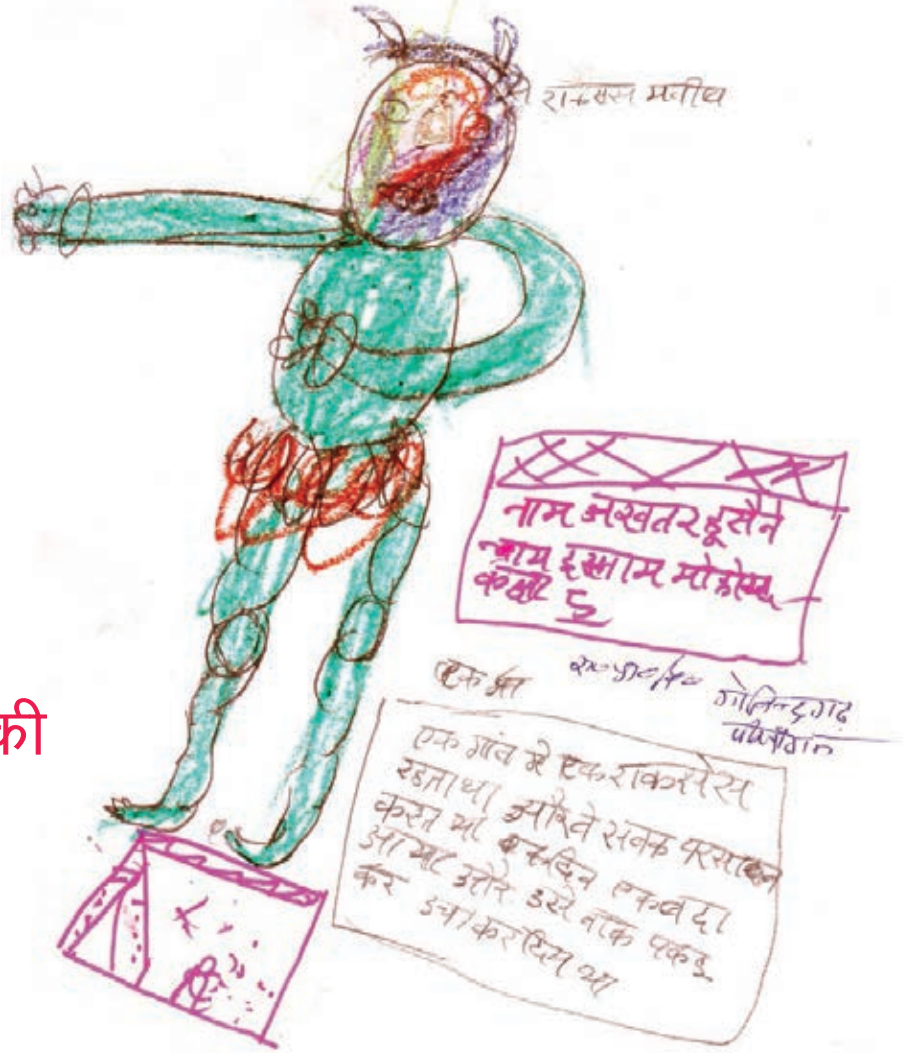 राकसस
नाम अखतर हूसैन
नाम इस्लाम मोहोमद
कक्षा 5
एक था
गोविन्दगढ
की
एक गांव मे एक राकसेस
रहता था और वे सबक परसान
करता था एक दिन एक बंदा
आया और उसे नाक पकड़
कर उचा कर दिया था